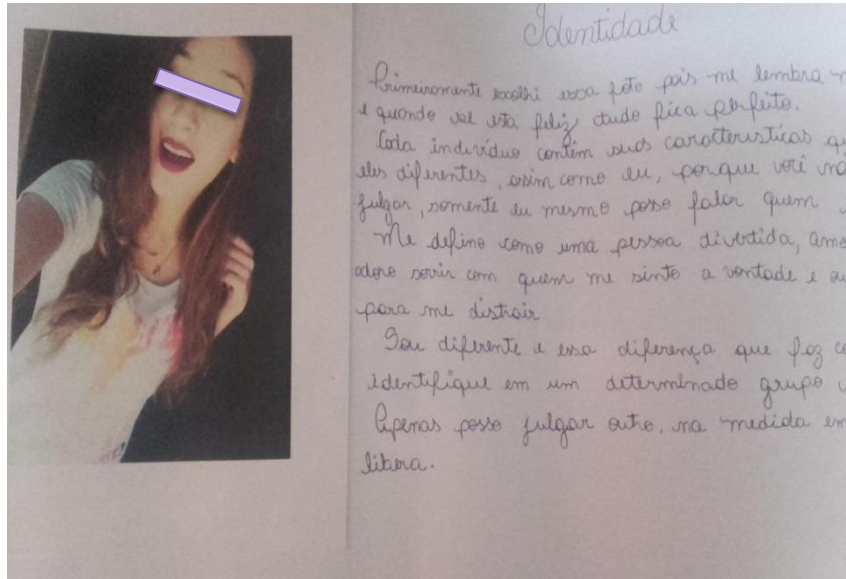 Identidade
Primeiramente escolhi essa foto pois me lembra
e quando vol está feliz tudo fica perfeito.
Cada indivíduo contém suas características
eles diferentes, assim como eu, porque você
julgar, somente eu mesmo posso falar quem
Me defino como uma pessoa divertida,
adoro sorrir com quem me sinto a vontade e
para me distrair
Sou diferente e essa diferença que faz
identifique em um determinado grupo
Apenas posso julgar outro, na medida em
libera.